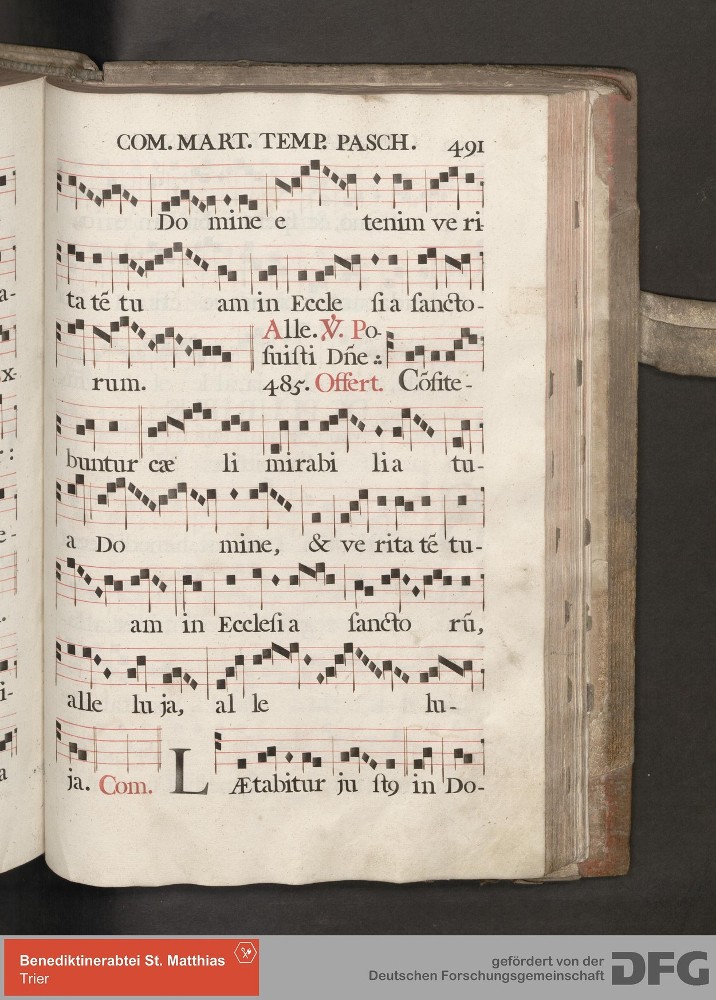 COM. MART. TEMP. PASCH. 491
Do mine e tenim ve ri-
ta tē tu am in Eccle si a sancto-
Alle. V. Po-
suisti Dñe
rum. 485. Offert. Cōfite-
buntur cæ li mirabi lia tu-
a Do mine, & ve rita tē tu-
am in Ecclesi a sancto rū,
alle lu ja, al le lu-
ja. Com. LÆtabitur ju st9 in Do-
a-
x-
:
e-
.
i-
a
Benediktinerabtei St. Matthias
Trier
gefördert von der
Deutschen Forschungsgemeinschaft DFG